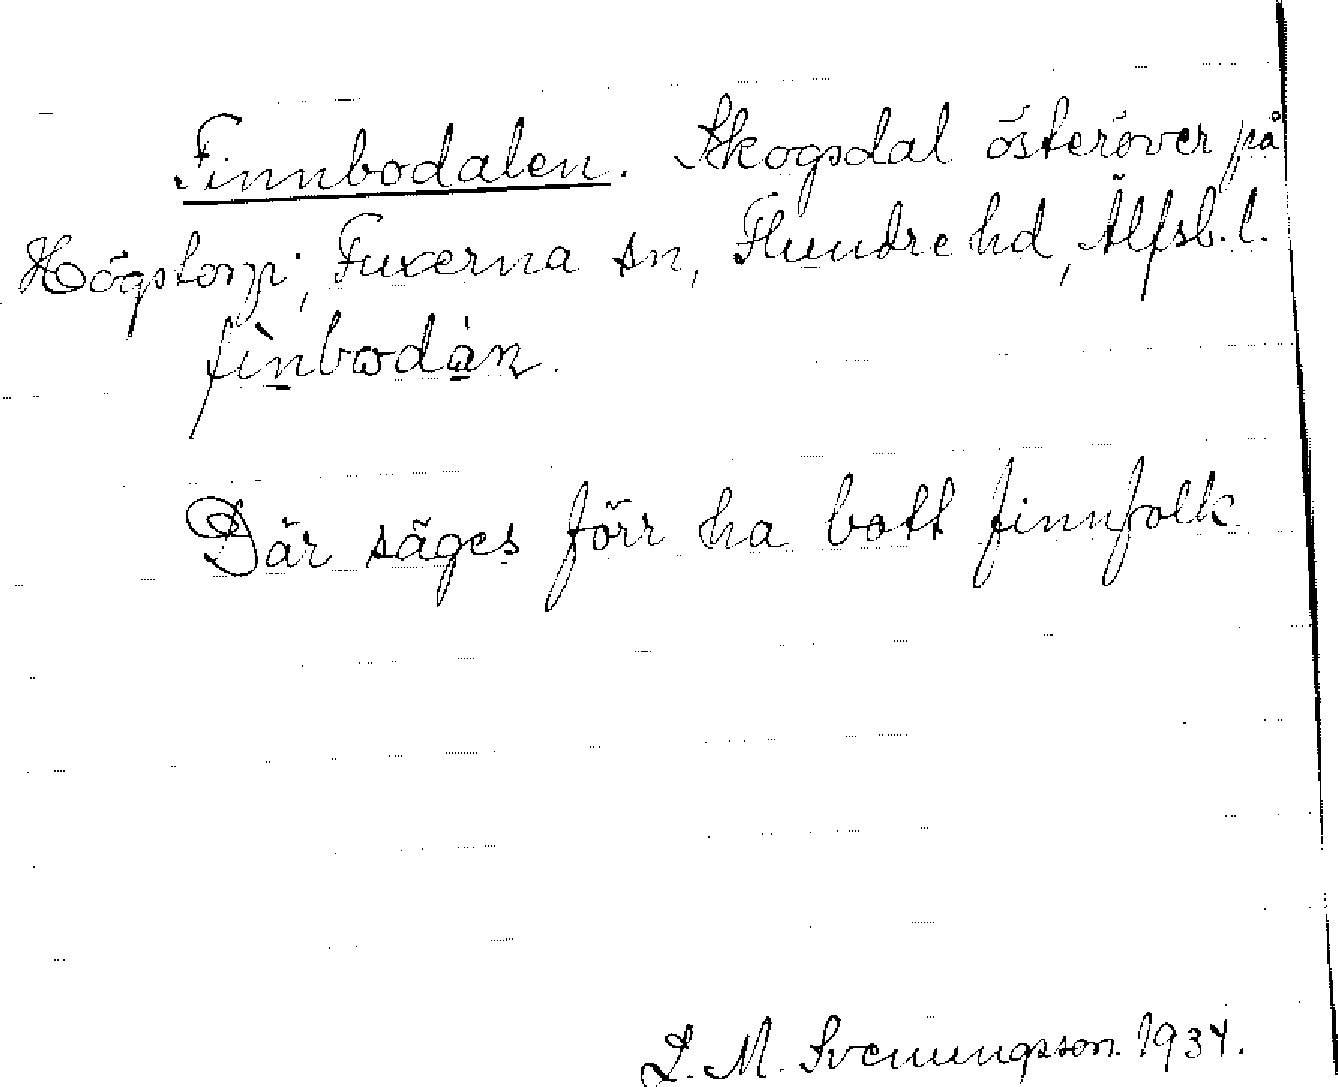 Finnbodalen. Skogsdal österöver på
Högstorp, Fuxerna sn, Flundre hd, Älfsb. l.
Där säges förr ha bott finnfolk
L. M. Svenungsson. 1934.